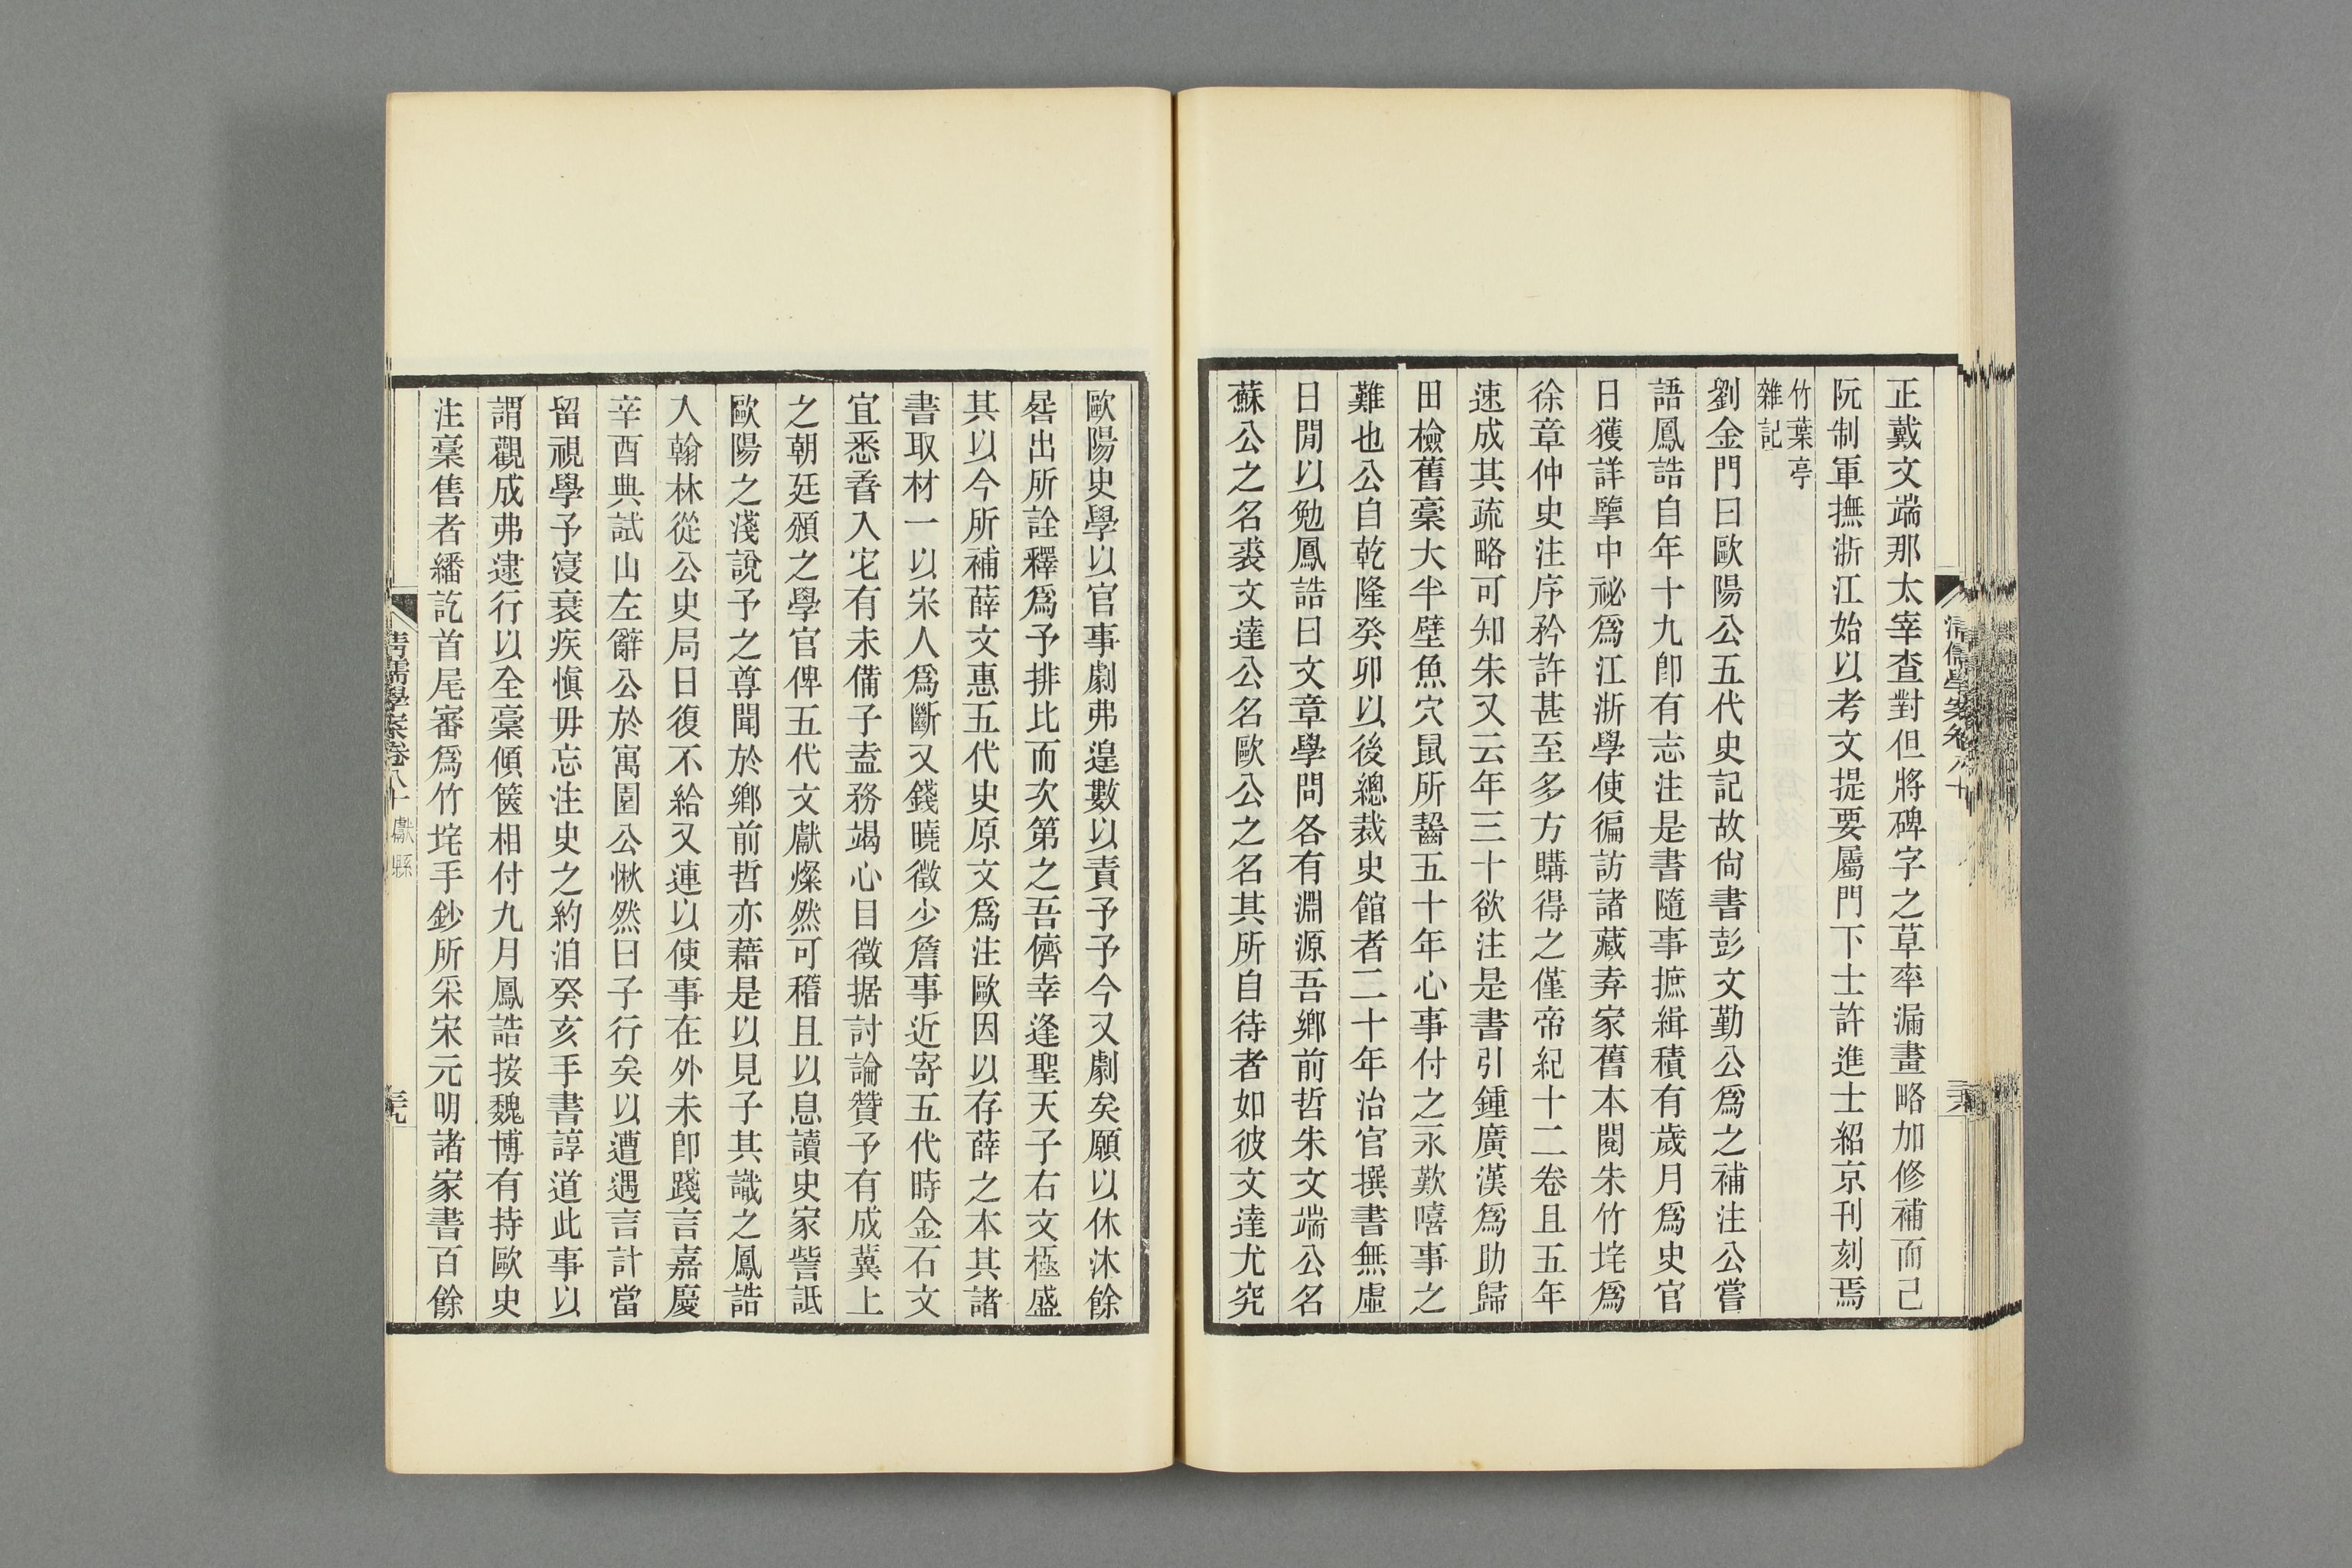 正戴文端那太宰查對但將碑字之草率漏畫略加修補而己
阮制軍撫浙江始以考文提要屬門下士許進士紹京刊刻焉
竹葉亭
雜記
劉金門曰歐陽公五代史記故尙書彭文勤公爲之補注公嘗
語鳳誥自年十九卽有志注是書隨事摭緝積有歲月爲史官
日獲詳擥中祕爲江浙學使徧訪諸藏弆家舊本閱朱竹垞爲
徐章仲史注序矜許甚至多方購得之僅帝紀十二卷且五年
速成其疏略可知朱又云年三十欲注是書引鍾廣漢爲助歸
田檢舊稾大半壁魚穴鼠所齧五十年心事付之永歎嘻事之
難也公自乾隆癸卯以後總裁史館者二十年治官撰書無虛
日閒以勉鳳誥曰文章學問各有淵源吾鄉前哲朱文端公名
蘇公之名裘文達公名歐公之名其所自待者如彼文達尤究
清儒學案卷八十
三六
歐陽史學以官事劇弗遑數以責予予今又劇矣願以休沐餘
晷出所詮釋爲予排比而次第之吾儕幸逢聖天子右文極盛
其以今所補薛文惠五代史原文爲注歐因以存薛之本其諸
書取材一以宋人爲斷又錢曉徵少詹事近寄五代時金石文
宜悉羼入宅有未備子盍務竭心目徵据討論贊予有成冀上
之朝廷頒之學官俾五代文獻燦然可稽且以息讀史家訾詆
歐陽之淺說予之尊聞於鄉前哲亦藉是以見子其識之鳳誥
入翰林從公史局日復不給又連以使事在外未卽踐言嘉慶
辛酉典試山左辭公於寓園公愀然曰子行矣以遭遇言計當
留視學予寖衰疾愼毋忘注史之約洎癸亥手書諄道此事以
謂觀成弗逮行以全稾傾篋相付九月鳳誥按魏博有持歐史
注稾售者繙訖首尾審爲竹垞手鈔所采宋元明諸家書百餘
清儒學案卷八十
獻縣
三九